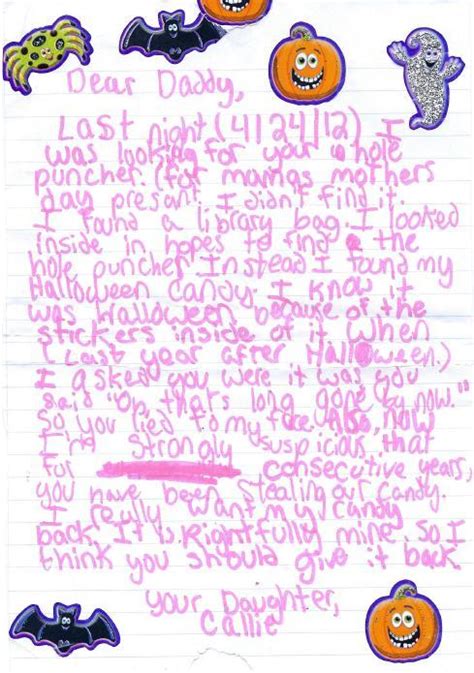 Dear Daddy,
Last night (4/24/12) I
was looking for your hole
puncher. (for mamas mothers
day presant. I didn't find it.
I found a library bag. I looked
inside in hopes to find the
hole puncher. Instead I found my
Halloween candy. I know it
was Halloween because of the
stickers inside of it. When
(Last year after Halloween.)
I asked you were it was you
said "Oh, that's long gone by now."
So you lied to my face. Also, now
I'm strongly suspicious that
for consecutive years,
you have been stealing our candy.
I really want my candy
back. It is Rightfully mine. So I
think you should give it back
Your Daughter,
Callie